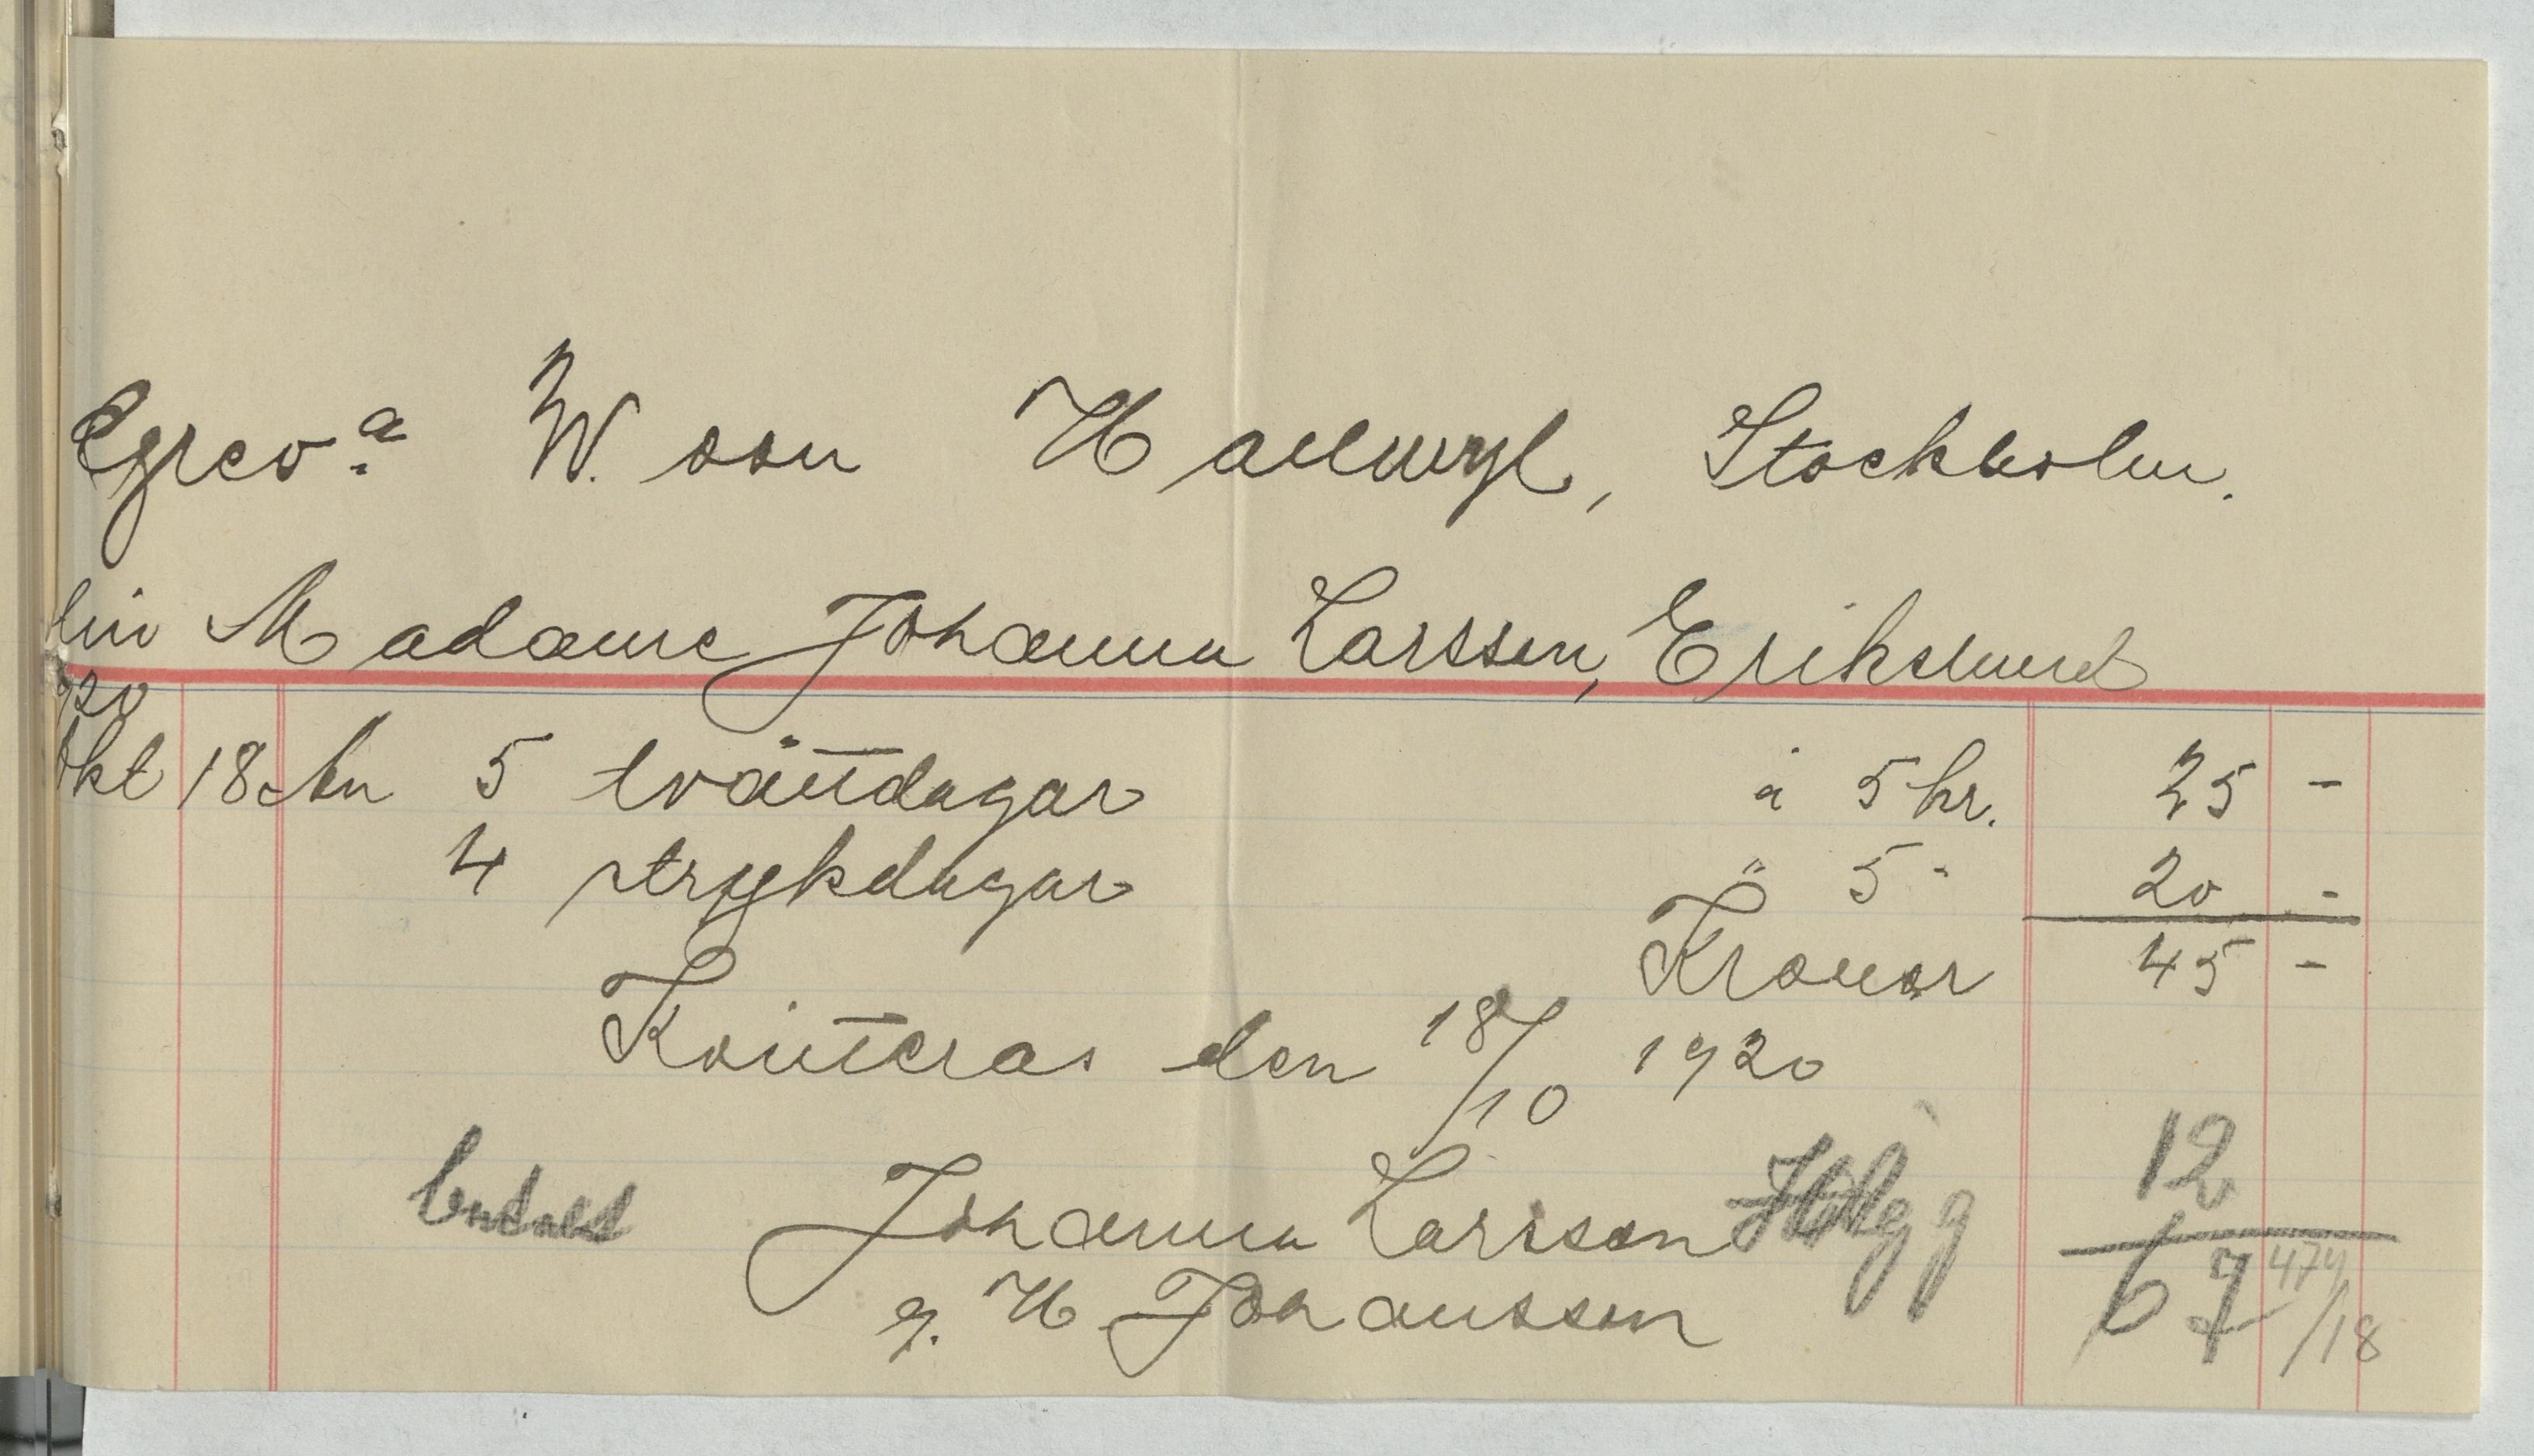 Grev.a W. von Hallwyl, Stockholm.
till Madame Johanna Larsson, Erikslund
1920
Okt 18 An 5 tvättdagar à 5 kr. 25 -
4 strykdagar " 5 " 20 -
Kronor 45 -
Kvitteras den 18/10 1920
12
betalt Johanna Larsson Tillägg
g. H Johansson 67 474/18